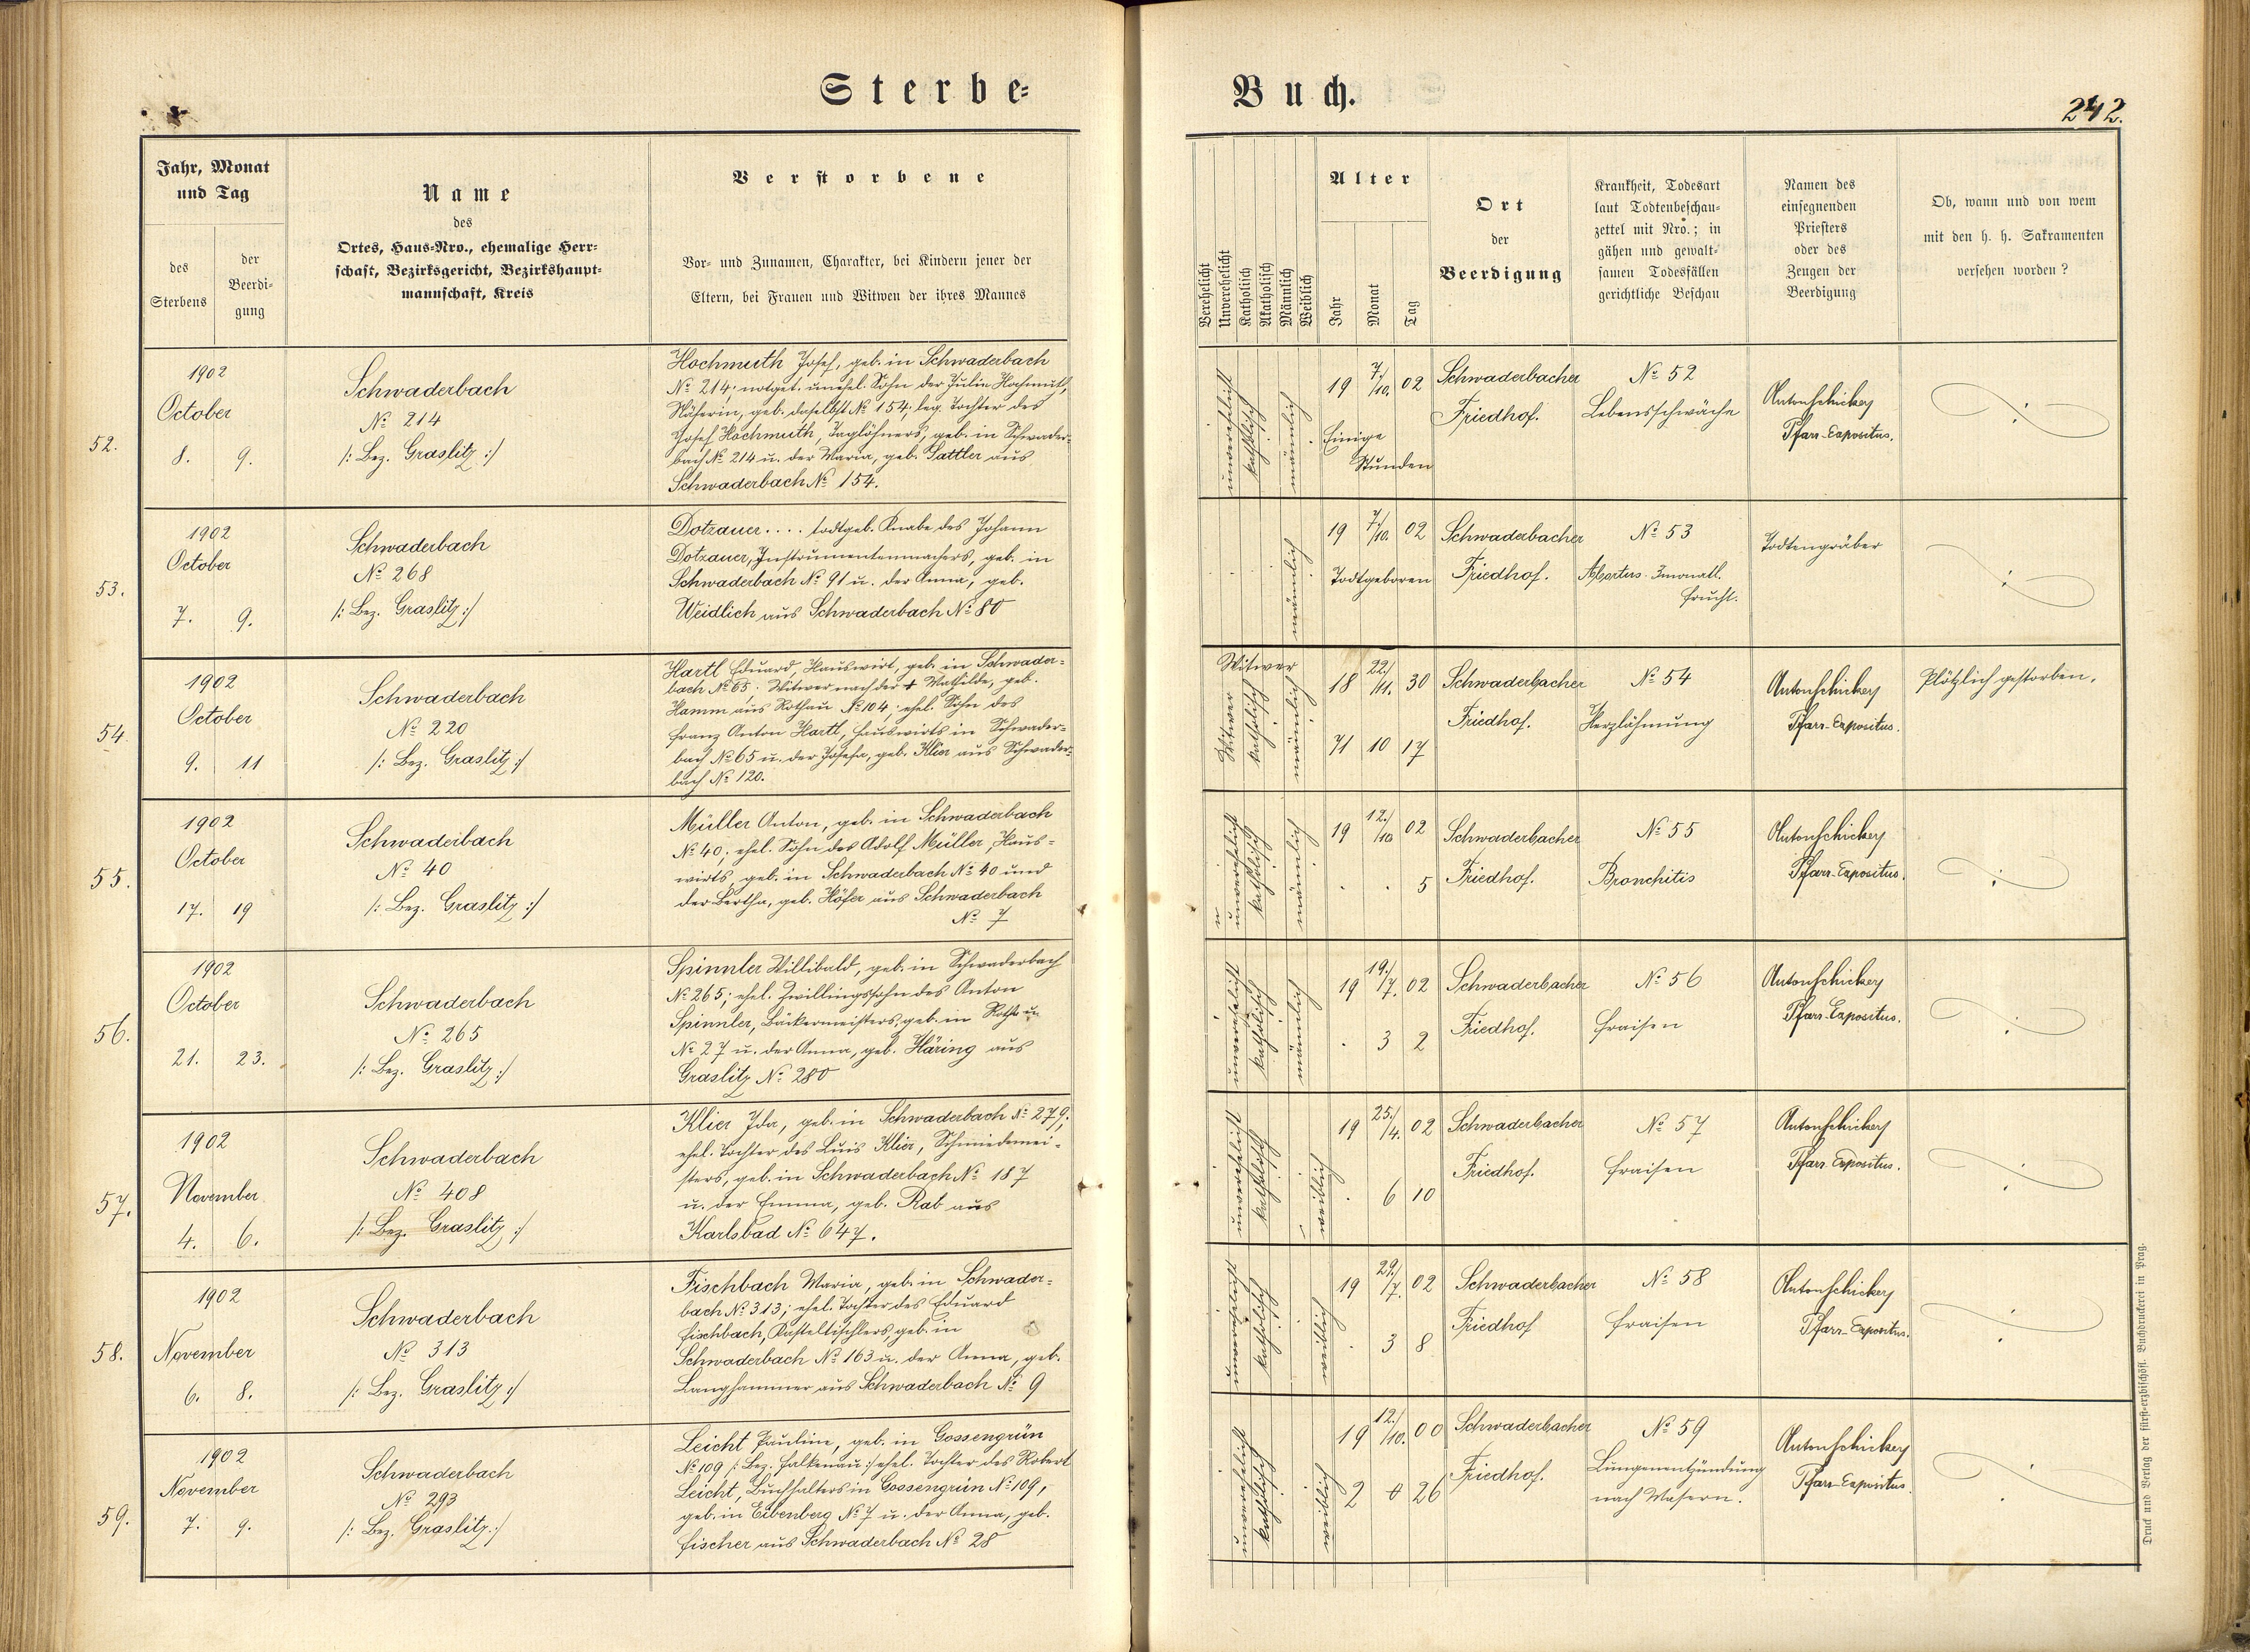 Sterbe=
Buch.
242.
Jahr, Monat
und Tag
des
Sterbens
der
Beerdi-
gung
Name
des
Ortes, Haus-Nro., ehemalige Herr-
schaft, Bezirksgericht, Bezirkshaupt-
mannschaft, Kreis
Verstorbene
Vor- und Zunamen, Charakter, bei Kindern jener der
Eltern, bei Frauen und Witwen der ihres Mannes
Verehelicht
Unverehelicht
Katholisch
Akatholisch
Männlich
Weiblich
Alter
Jahr
Monat
Tag
Ort
der
Beerdigung
Krankheit, Todesart
laut Todtenbeschau-
zettel mit Nro.; in
gähen und gewalt-
samen Todesfällen
gerichtliche Beschau
Namen des
einsegnenden
Priesters
oder des
Zeugen der
Beerdigung
Ob, wann und von wem
mit den h. h. Sakramenten
versehen worden?
52.
1902
October
8. 9.
Schwaderbach
№ 214
/: Bez. Graslitz :/
Hochmuth Josef, geb. in Schwaderbach
№ 214; notget. unehel. Sohn der Julie Hochmuth,
Näherin, geb. daselbst № 154, leg. Tochter des
Josef Hochmuth, Taglöhners, geb. in Schwader-
bach № 214 u. der Maria, geb. Sattler aus
Schwaderbach № 154.
unverehelicht
katholisch
männlich
19 7./10. 02
Einige
Stunden
Schwaderbacher
Friedhof.
№ 52
Lebensschwäche
Anton Schickery
Pfarr-Expositus.
53.
1902
October
7. 9.
Schwaderbach
№ 268
/: Bez. Graslitz :/
Dotzauer.... todtgeb. Knabe des Johann
Dotzauer, Instrumentenmachers, geb. in
Schwaderbach № 91 u. der Anna, geb.
Weidlich aus Schwaderbach № 80
männlich
19 7./10. 02
Todtgeboren
Schwaderbacher
Friedhof.
№ 53
Abortus. 3monatl.
Frucht.
Todtengräber
54.
1902
October
9. 11
Schwaderbach
№ 220
/: Bez. Graslitz :/
Hartl Eduard, Hauswirt, geb. in Schwader-
bach № 65. Witwer nach der † Mathilde, geb.
Hamm aus Rothau № 104; ehel. Sohn des
Franz Anton Hartl, Hauswirts in Schwader-
bach № 65 u. der Josefa, geb. Klier aus Schwader-
bach № 120.
Witwer
Witwer
katholisch
männlich
18 22./11. 30
71 10 17
Schwaderbacher
Friedhof.
№ 54
Herzlähmung
Anton Schickery
Pfarr-Expositus.
Plötzlich gestorben.
55.
1902
October
17. 19
Schwaderbach
№ 40
/: Bez. Graslitz :/
Müller Anton, geb. in Schwaderbach
№ 40; ehel. Sohn des Adolf Müller, Haus-
wirts, geb. in Schwaderbach № 40 und
der Bertha, geb. Höfer aus Schwaderbach
№ 7
unverehelicht
katholisch
männlich
19 12./10. 02
. . 5
Schwaderbacher
Friedhof.
№ 55
Bronchitis
Anton Schickery
Pfarr-Expositus.
56.
1902
October
21. 23.
Schwaderbach
№ 265
/: Bez. Graslitz :/
Spinnler Willibald, geb. in Schwaderbach
№ 265; ehel. Zwillingssohn des Anton
Spinnler, Bäckermeisters, geb. in
№ 27 u. der Anna, geb. Häring aus
Graslitz № 280
unverehelicht
katholisch
männlich
19 19./7. 02
. 3 2
Schwaderbacher
Friedhof.
№ 56
Fraisen
Anton Schickery
Pfarr-Expositus.
57.
1902
November
4. 6.
Schwaderbach
№ 408
/: Bez. Graslitz :/
Klier Ida, geb. in Schwaderbach № 279;
ehel. Tochter des Luis Klier, Schmiedemei-
sters, geb. in Schwaderbach № 187
u. der Emma, geb. Rab aus
Karlsbad № 647.
unverehelicht
katholisch
weiblich
19 25./4. 02
. 6 10
Schwaderbacher
Friedhof.
№ 57
Fraisen
Anton Schickery
Pfarr-Expositus.
58.
1902
November
6. 8.
Schwaderbach
№ 313
/: Bez. Graslitz :/
Fischbach Maria, geb. in Schwader-
bach № 313; ehel. Tochter des Eduard
Fischbach, Kasteltischlers, geb. in
Schwaderbach № 163 u. der Anna, geb.
Langhammer aus Schwaderbach № 9
unverehelicht
katholisch
weiblich
19 29./7. 02
. 3 8
Schwaderbacher
Friedhof
№ 58
Fraisen
Anton Schickery
Pfarr-Expositus.
59.
1902
November
7. 9.
Schwaderbach
№ 293
/: Bez. Graslitz :/
Leicht Pauline, geb. in Gossengrün
№ 109 /: Bez. Falkenau :/ ehel. Tochter des Robert
Leicht, Buchhalters in Gossengrün № 109,
geb. in Eibenberg № 7 u. der Anna, geb.
Fischer aus Schwaderbach № 28
unverehelicht
katholisch
weiblich
19 12./10. 00
2 0 26
Schwaderbacher
Friedhof.
№ 59
Lungenentzündung
nach Masern.
Anton Schickery
Pfarr-Expositus.
Druck und Verlag der fürst-erzbischöfl. Buchdruckerei in Prag.